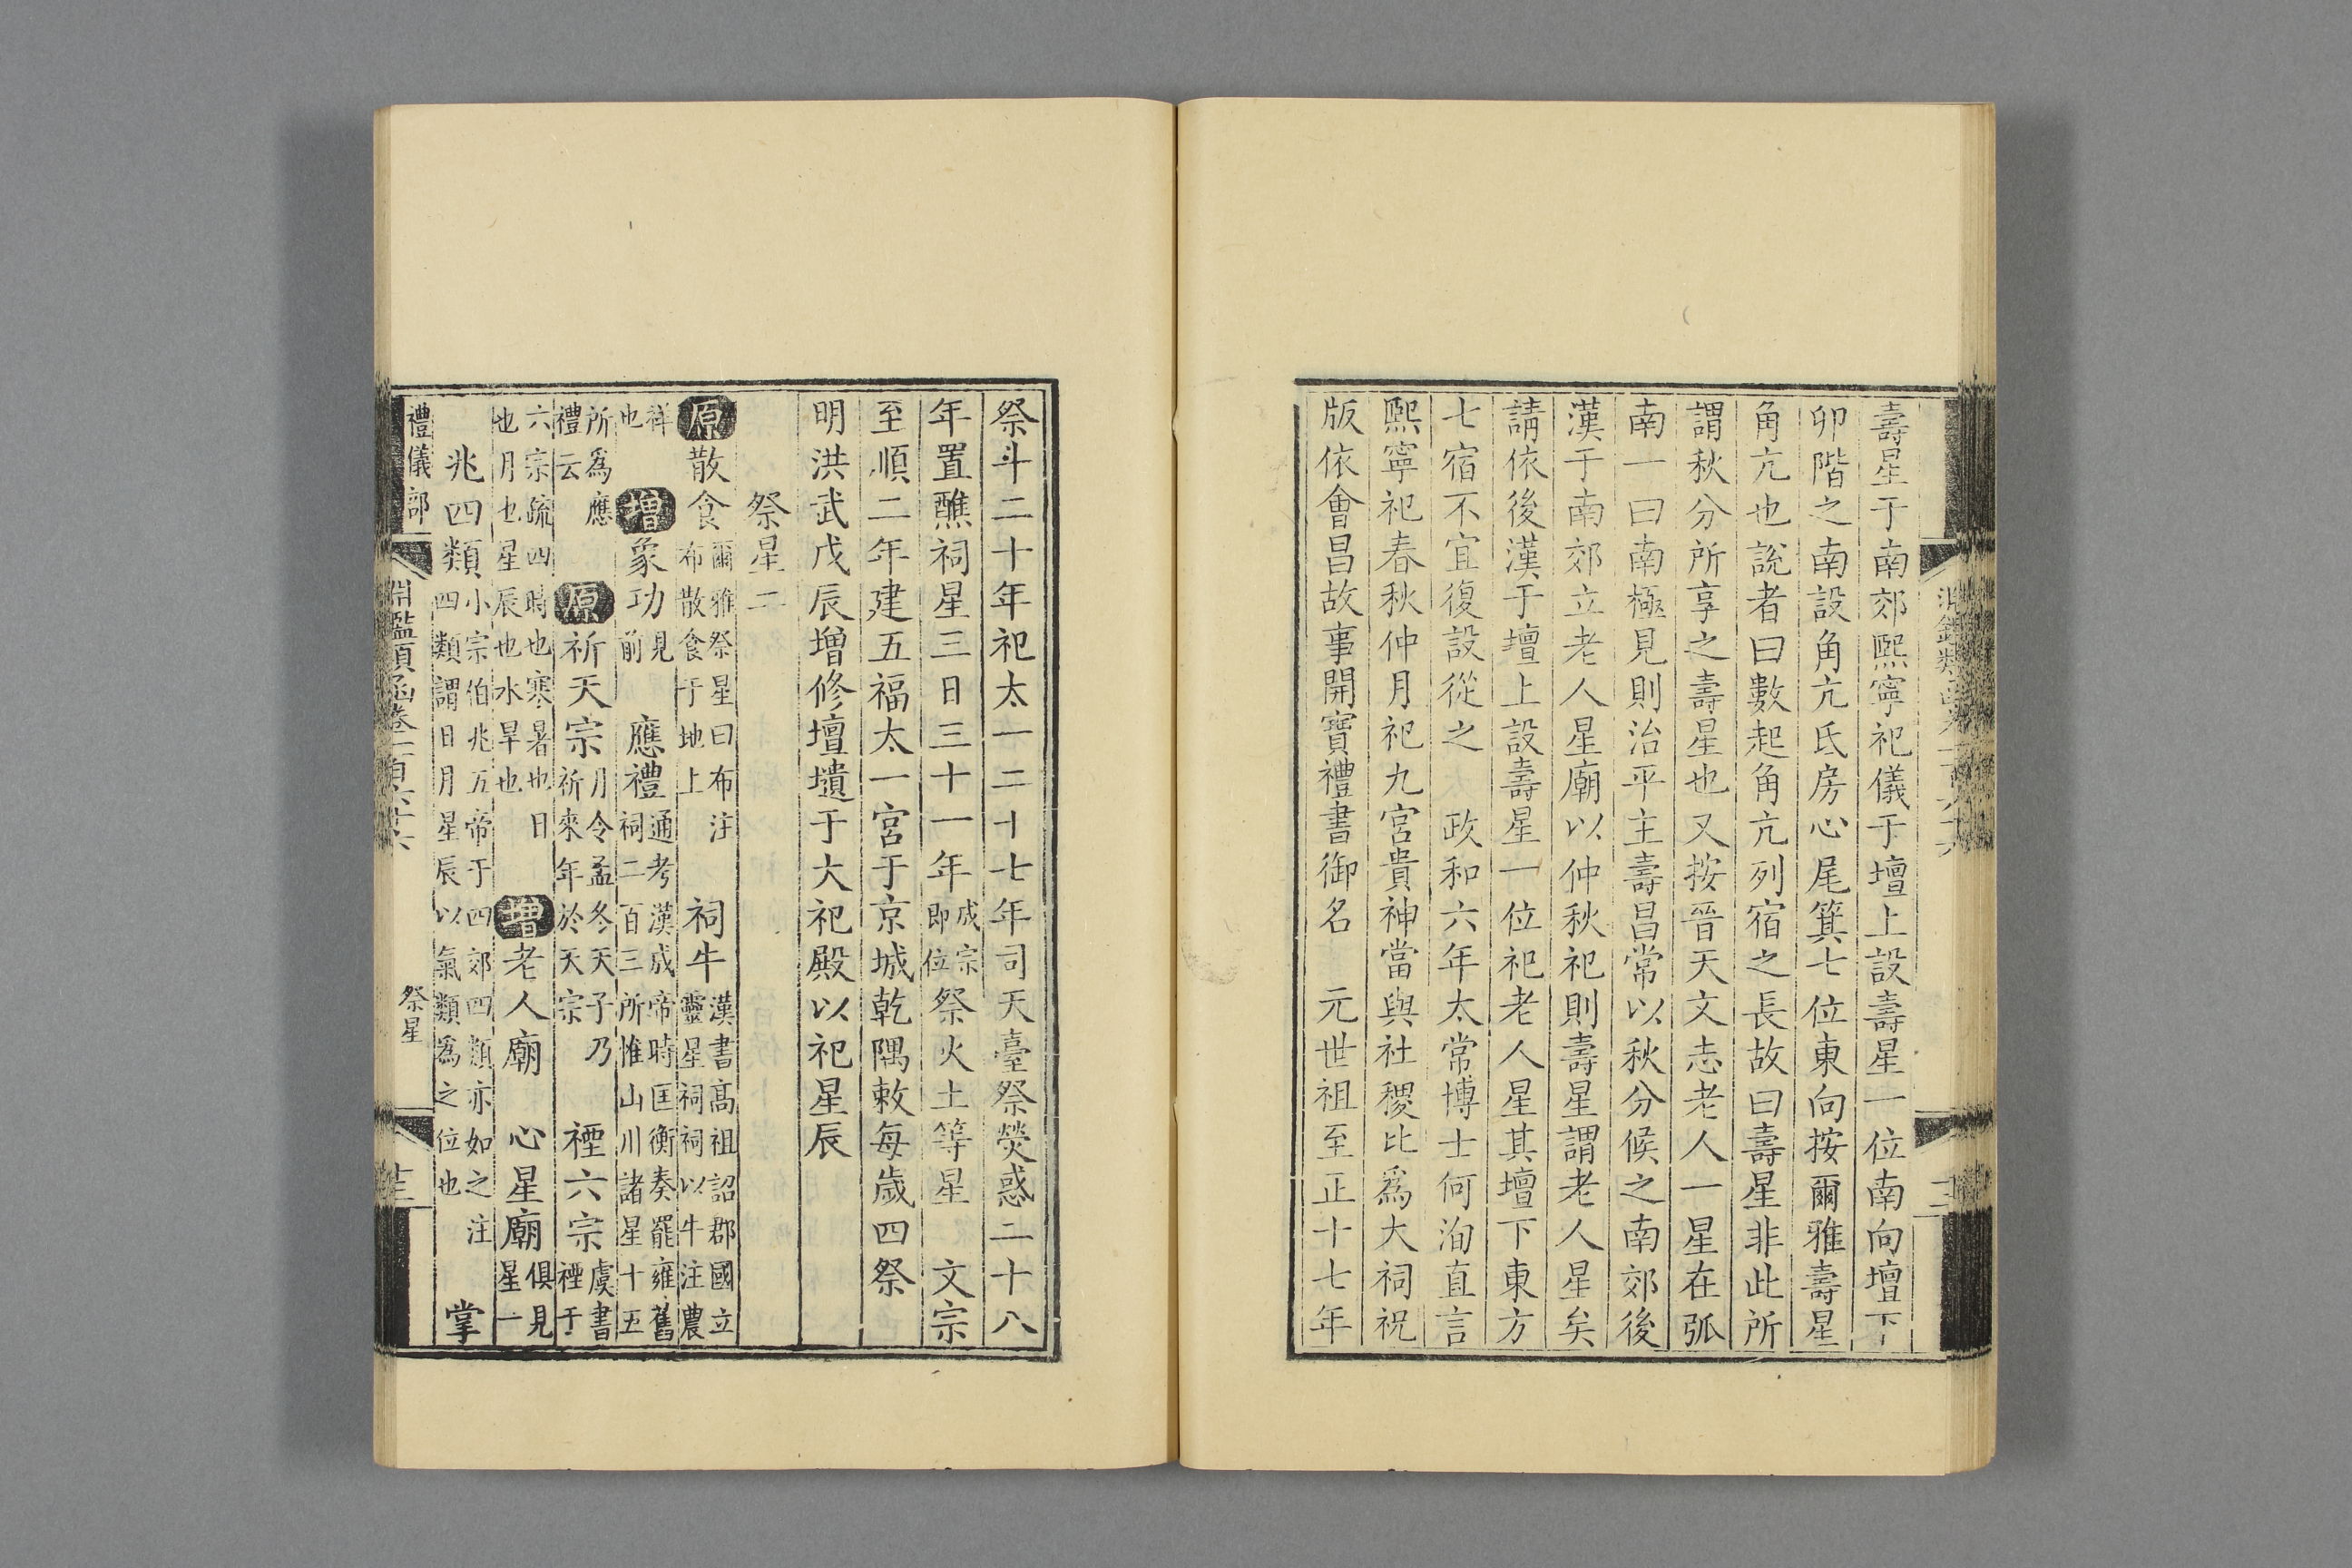 壽星于南郊熙寧祀儀于壇上設壽星一位南向壇下
卯階之南設角亢氐房心尾箕七位東向按爾雅壽星
角亢也說者曰數起角亢列宿之長故曰壽星非此所
謂秋分所享之壽星也又按晉天文志老人一星在弧
南一曰南極見則治平主壽昌常以秋分候之南郊後
漢于南郊立老人星廟以仲秋祀則壽星謂老人星矣
請依後漢于壇上設壽星一位祀老人星其壇下東方
七宿不宜復設從之 政和六年太常博士何洵直言
熙寧祀春秋仲月祀九宮貴神當與社稷比爲大祠祝
版依會昌故事開寶禮書御名 元世祖至正十七年
祭斗二十年祀太一二十七年司天臺祭熒惑二十八
年置醮祠星三日三十一年成宗即位祭火土等星 文宗
至順二年建五福太一宮于京城乾隅敕每歲四祭
明洪武戊辰增修壇壝于大祀殿以祀星辰
祭星二
原散食爾雅祭星曰布注布散食于地上 祠牛漢書高祖詔郡國立靈星祠祠以牛注農
祥也 增象功見前 應禮通考漢成帝時匡衡奏罷雍舊祠二百三所惟山川諸星十五
所爲應禮云 原祈天宗月令孟冬天子乃祈來年於天宗 禋六宗虞書禋于
六宗疏四時也寒暑也日也月也星辰也水旱也 增老人廟 心星廟俱見星一
兆四類小宗伯兆五帝于四郊四類亦如之注四類謂日月星辰以氣類爲之位也 掌
禮儀部
淵鑑類函卷一百六十六
祭星